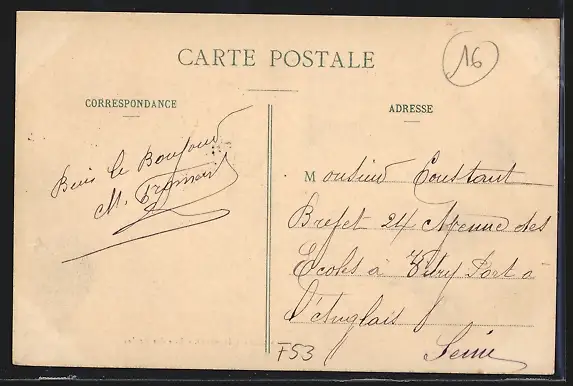 CARTE POSTALE
16
CORRESPONDANCE
ADRESSE
Bien le Bonjour
M. Fromont
Monsieur Constant
Brefet 24 Avenue des
Ecoles à Vitry Port à
l'Anglais
Seine
F53